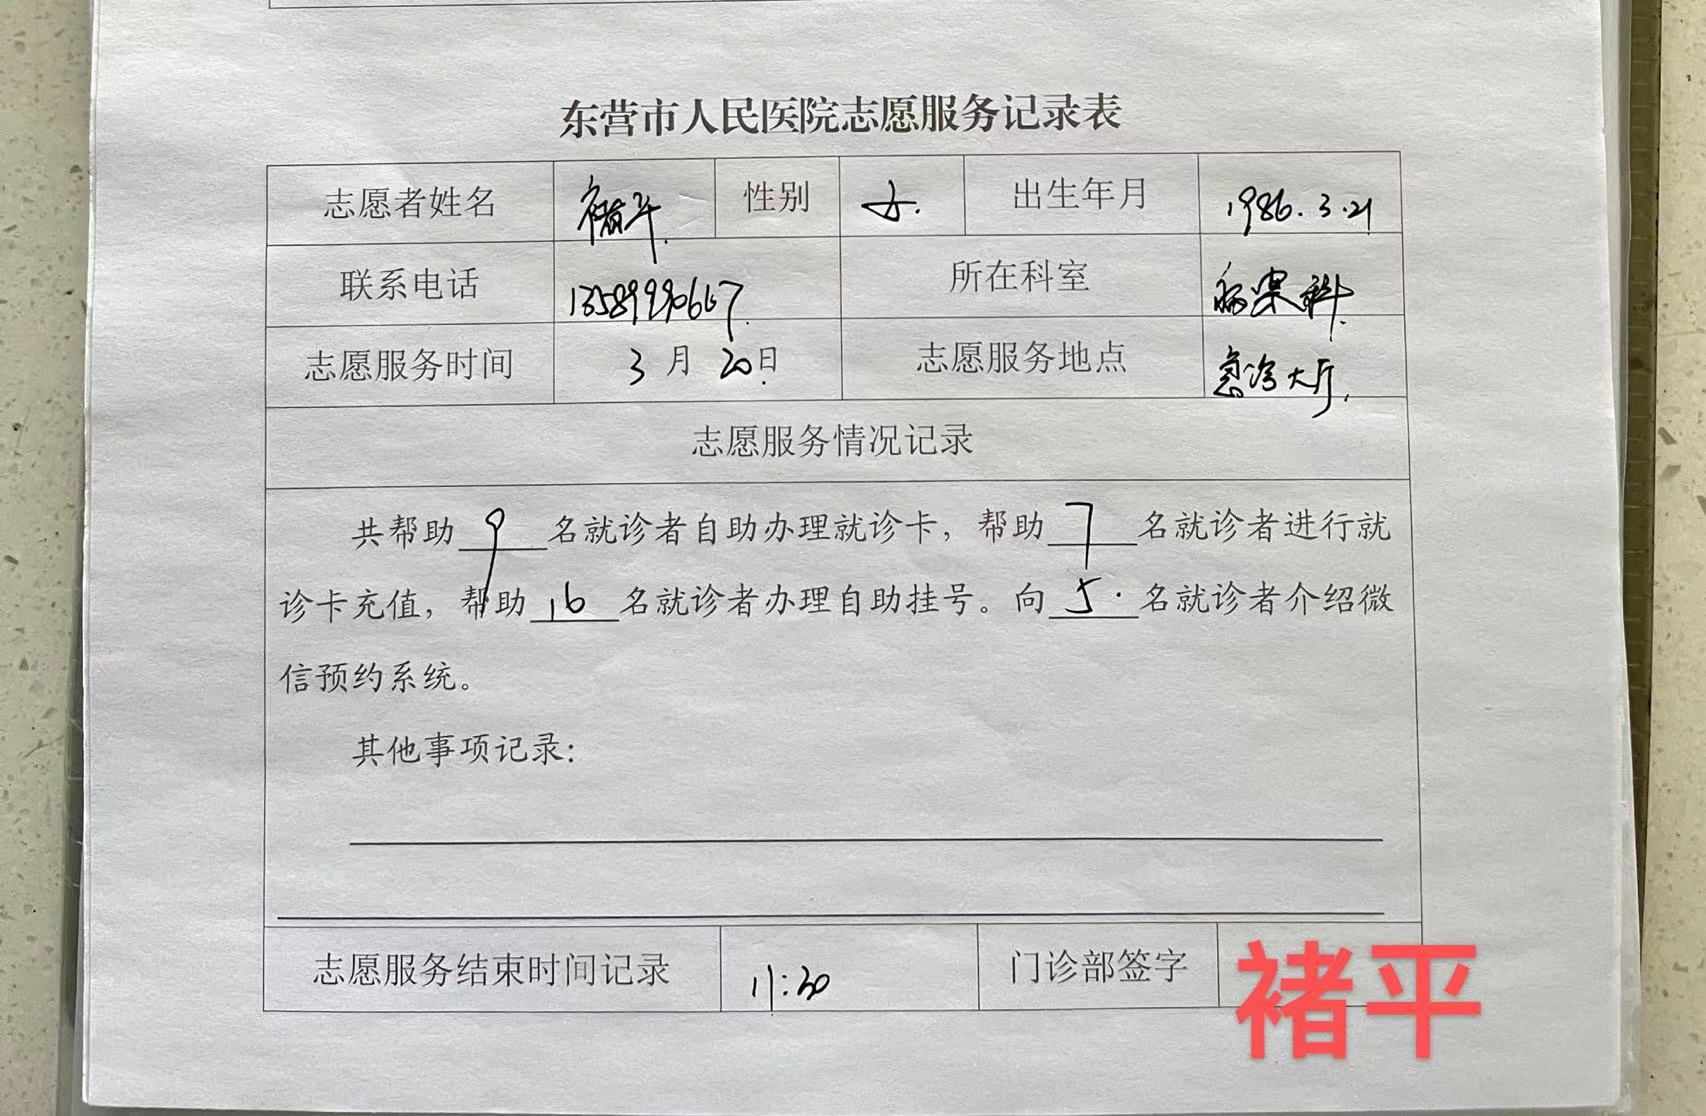 东营市人民医院志愿服务记录表
志愿者姓名 褚平 性别 女 出生年月 1986.3.21
联系电话 13589990667 所在科室 科
志愿服务时间 3月20日 志愿服务地点 急诊大厅
志愿服务情况记录
共帮助9名就诊者自助办理就诊卡，帮助7名就诊者进行就
诊卡充值，帮助16名就诊者办理自助挂号。向5名就诊者介绍微
信预约系统。
其他事项记录：
志愿服务结束时间记录 11:30 门诊部签字 褚平